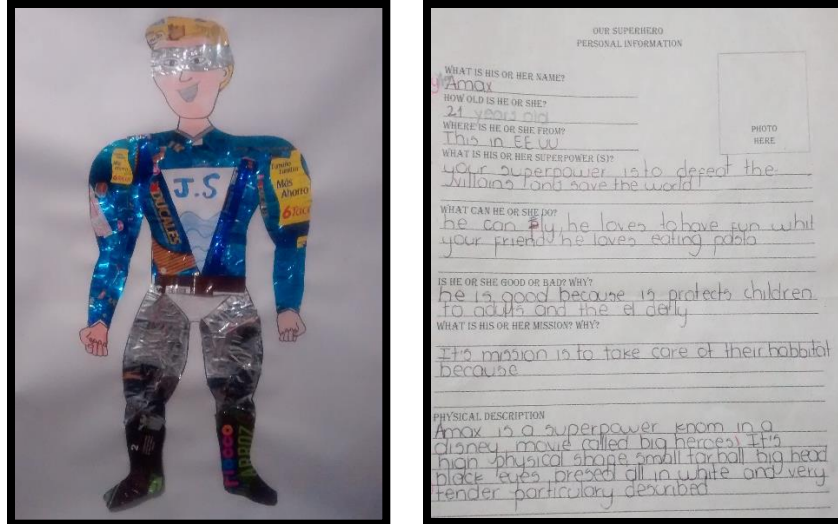 J.S
Tamaño Familiar
Más
Ahorro
6 Taza
NUCKLES
2
fiocco
ARROZ
OUR SUPERHERO
PERSONAL INFORMATION
WHAT IS HIS OR HER NAME?
Amax
HOW OLD IS HE OR SHE?
21 years old
WHERE IS HE OR SHE FROM?
This in EE UU
PHOTO
HERE
WHAT IS HIS OR HER SUPERPOWER (S)?
your superpower is to defeat the
villains and save the world
WHAT CAN HE OR SHE DO?
he can fly, he loves to have fun whit
your friend he loves eating pasta
IS HE OR SHE GOOD OR BAD? WHY?
he is good because is protects children
to adults and the el derly
WHAT IS HIS OR HER MISSION? WHY?
It's mission is to take care of their habbitat
because
PHYSICAL DESCRIPTION
Amax is a superpower knom in a
disney movie called big heroes! It's
high physical shage small tarball big head
black eyes presed all in white and very
tender particulary described